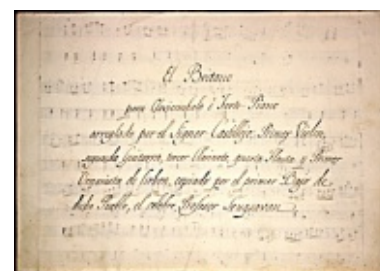 El Britano
para Clavicímbalo ó Forte Piano
arreglado por el Signor Castillejo, Primer Violin,
segunda Guitarra, tercer Clarinete, quarta Flauta y Primer
Organista de Lisboa, copiado por el primer Bajo de
dicho Pueblo, el célebre Profesor